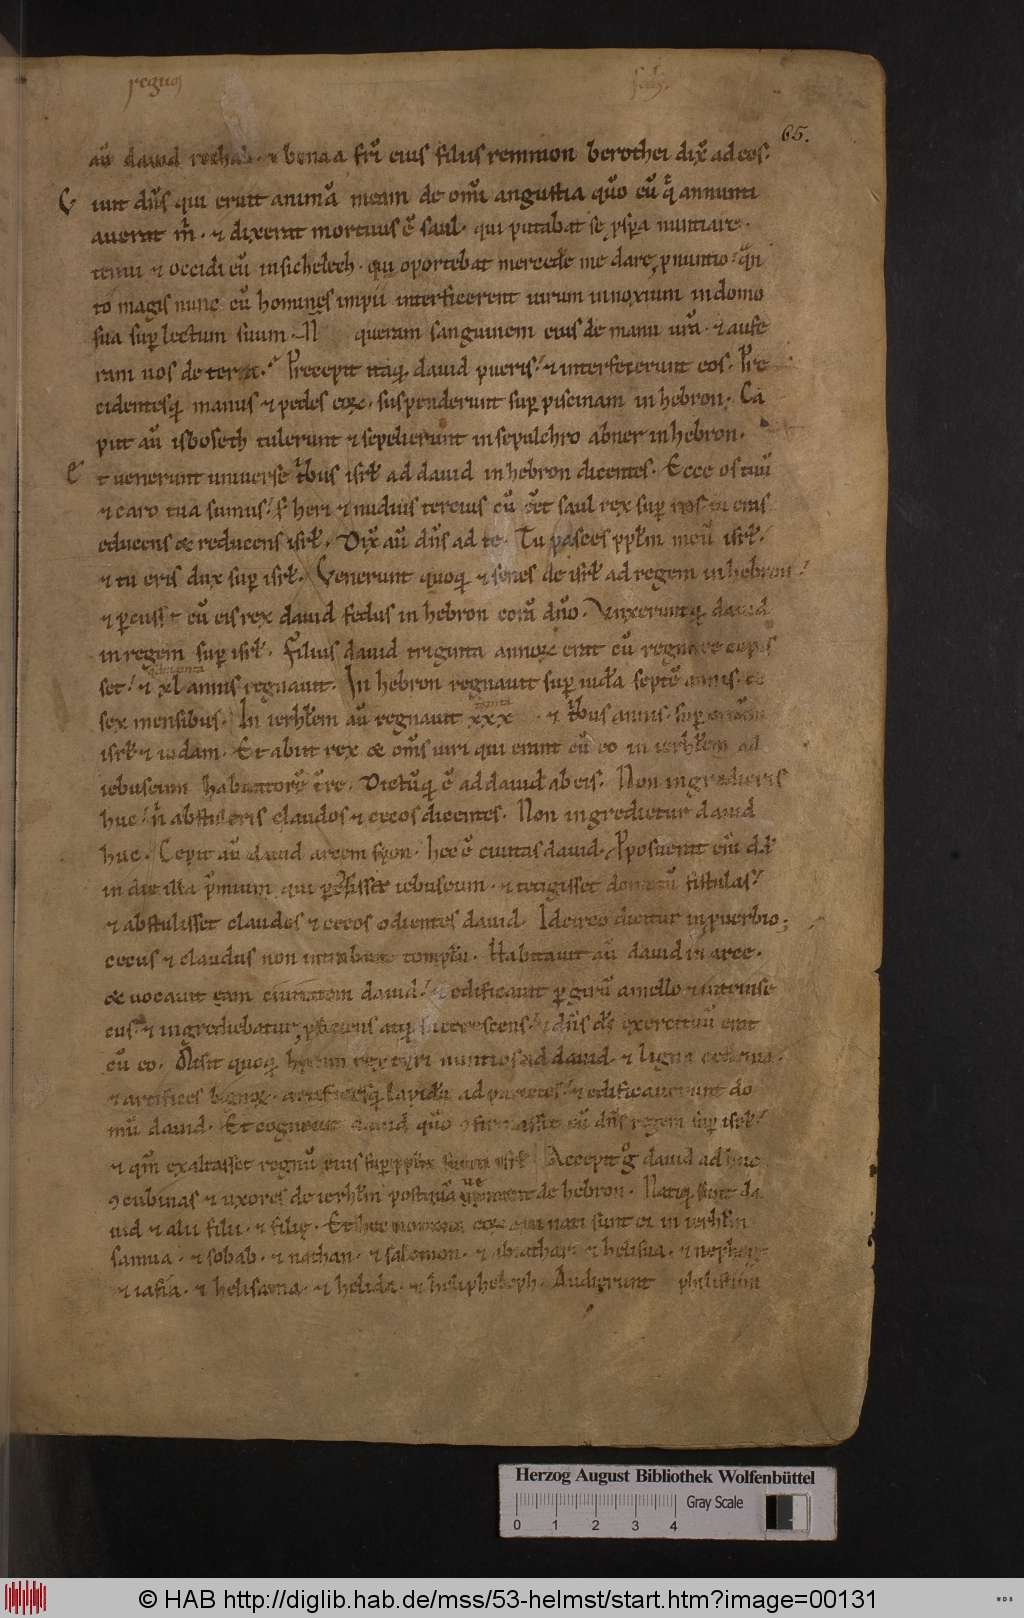 regum
65.
aū dauid rechab · ⁊ banaa fr̄i eius filius remmon berothei dix̄ ad eos·
Uiuit dn̄s qui eruit animā meam de om̄i angustia qm̄o eū q̄ annunti
auerat m̄ · ⁊ dixerat mortuus ē saul · qui putabat se ꝓspa nuntiare ·
tenui ⁊ occidi eū in sichelech · qui oportebat mercedē me dare, ꝓ nuntio · q̄n
to magis nunc cū homines impii interficerent uirum innoxium in domo
sua sup lectum suum · N queram sanguinem eius de manu ur̄a · ⁊ aufe
ram uos de terra · Precepit itaq dauid pueris · ⁊ interfecerunt eos · Pre
cidentesq manus ⁊ pedes eoꝝ · suspenderunt sup piscinam in hebron · Ca
put aū isboseth tulerunt ⁊ sepelierunt in sepulchro abner in hebron ·
Et uenerunt uniuerse tbus isrł ad dauid in hebron dicentes · Ecce os tuū
⁊ caro tua sumus · s heri ⁊ nudius tercius cū eēt saul rex sup nos · tu eras
educens & reducens isrł · Dix̄ aū dn̄s ad te · Tu pasces ppłm meū isrł ·
⁊ tu eris dux sup isrł · Venerunt quoq ⁊ senes de isrł ad regem in hebron ·
⁊ pcussit cū eis rex dauid fedus in hebron corā dn̄o · Unxeruntq dauid
in regem sup isrł · Filius dauid triginta annoꝝ erat cū regnare cepis
set · ⁊ xl annis regnauit · In hebron regnauit sup iudā septē annis · ⁊
sex mensibus · In ierhłem aū regnauit xxx · ⁊ tbus annis · sup omnem
isrł ⁊ iudam · Et abiit rex & om̄s uiri qui erant cū eo in ierhłem ad
iebuseum habitatorē tr̄e · Dictūq ē ad dauid ab eis · Non ingredieris
huc · n̄ abstuleris claudos ⁊ cecos dicentes · Non ingredietur dauid
huc · Cepit aū dauid arcem syon · hec ē ciuitas dauid · Pposuerat eni dd
in die illa p̄mium qui pcussisset iebuseum · ⁊ tetigisset domatū fistulas ·
⁊ abstulisset claudos ⁊ cecos odientes dauid · Idcirco dicitur in ꝓuerbio ;
cecus ⁊ claudus non intrabunt templū · Habitauit aū dauid in arce ·
& uocauit eam ciuitatem dauid · ⁊ edificauit p girū a mello ⁊ intrinse
cus · ⁊ ingrediebatur, ꝓficiens atq succrescens · ⁊ dn̄s ds̄ exercituū erat
cū eo · Misit quoq hyram rex tyri nuntios ad dauid · ⁊ ligna cedrina ·
⁊ artifices lignoꝝ · artificesq lapidū ad parietes · ⁊ edificauerunt do
mū dauid · Et cognouit dauid qm̄o ꝯfirmasset eū dn̄s regem sup isrł ·
⁊ qm̄ exaltasset regnū eius sup ppłm suum isrł Accepit g dauid adhuc
ꝯcubinas ⁊ uxores de ierhłm postquā uenerat de hebron · Natiq sunt da
uid ⁊ alii filii · ⁊ filie · Et hec nomina eoꝝ qui nati sunt ei in ierhłm
samua · ⁊ sobab · ⁊ nathan · ⁊ salomon · ⁊ abiathar ⁊ helisua · ⁊ nepheg
⁊ iafia · ⁊ helisama · ⁊ helida · ⁊ helipheleph · Audierunt philistiim
Herzog August Bibliothek Wolfenbüttel
0 1 2 3 4 Gray Scale
© HAB http://diglib.hab.de/mss/53-helmst/start.htm?image=00131